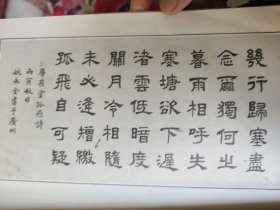 幾行歸塞盡
念爾獨何之
暮雨相呼失
寒塘欲下遲
渚雲低暗度
關月冷相隨
未必逢矰繳
孤飛自可疑
唐崔塗孤雁詩
丙寅秋日
姚永全書于廣州